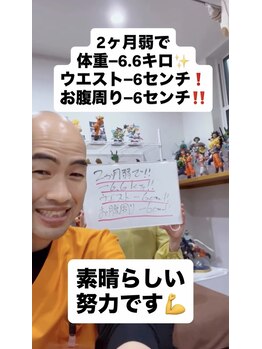 2ヶ月弱で
体重−6.6キロ✨
ウエスト−6センチ❗
お腹周り−6センチ‼️
2ヶ月弱で!!
−6.6kg!!
ウエスト −6cm!!
お腹周り −6cm!!
素晴らしい
努力です💪